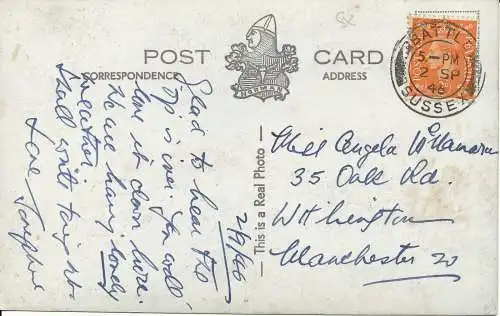 POST CARD
CORRESPONDENCE
ADDRESS
NORMAN
BATTLE
5 - PM
2 SP
46
SUSSEX
This is a Real Photo
2/9/46
Glad to hear the
is over. You would
love it down here.
We are having lovely
weather.
Shall write tonight
Love
Miss Angela
35 Oak Rd.
Withington
Manchester 20